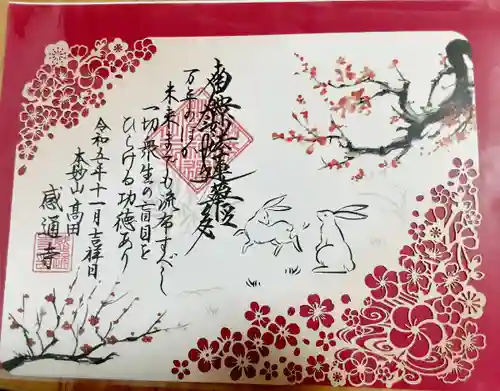 南無妙法蓮華経
万年のほか
未来までも流布すべし
一切衆生の盲目を
ひらける功徳あり
令和五年十一月吉祥日
本妙山 高田
感通寺